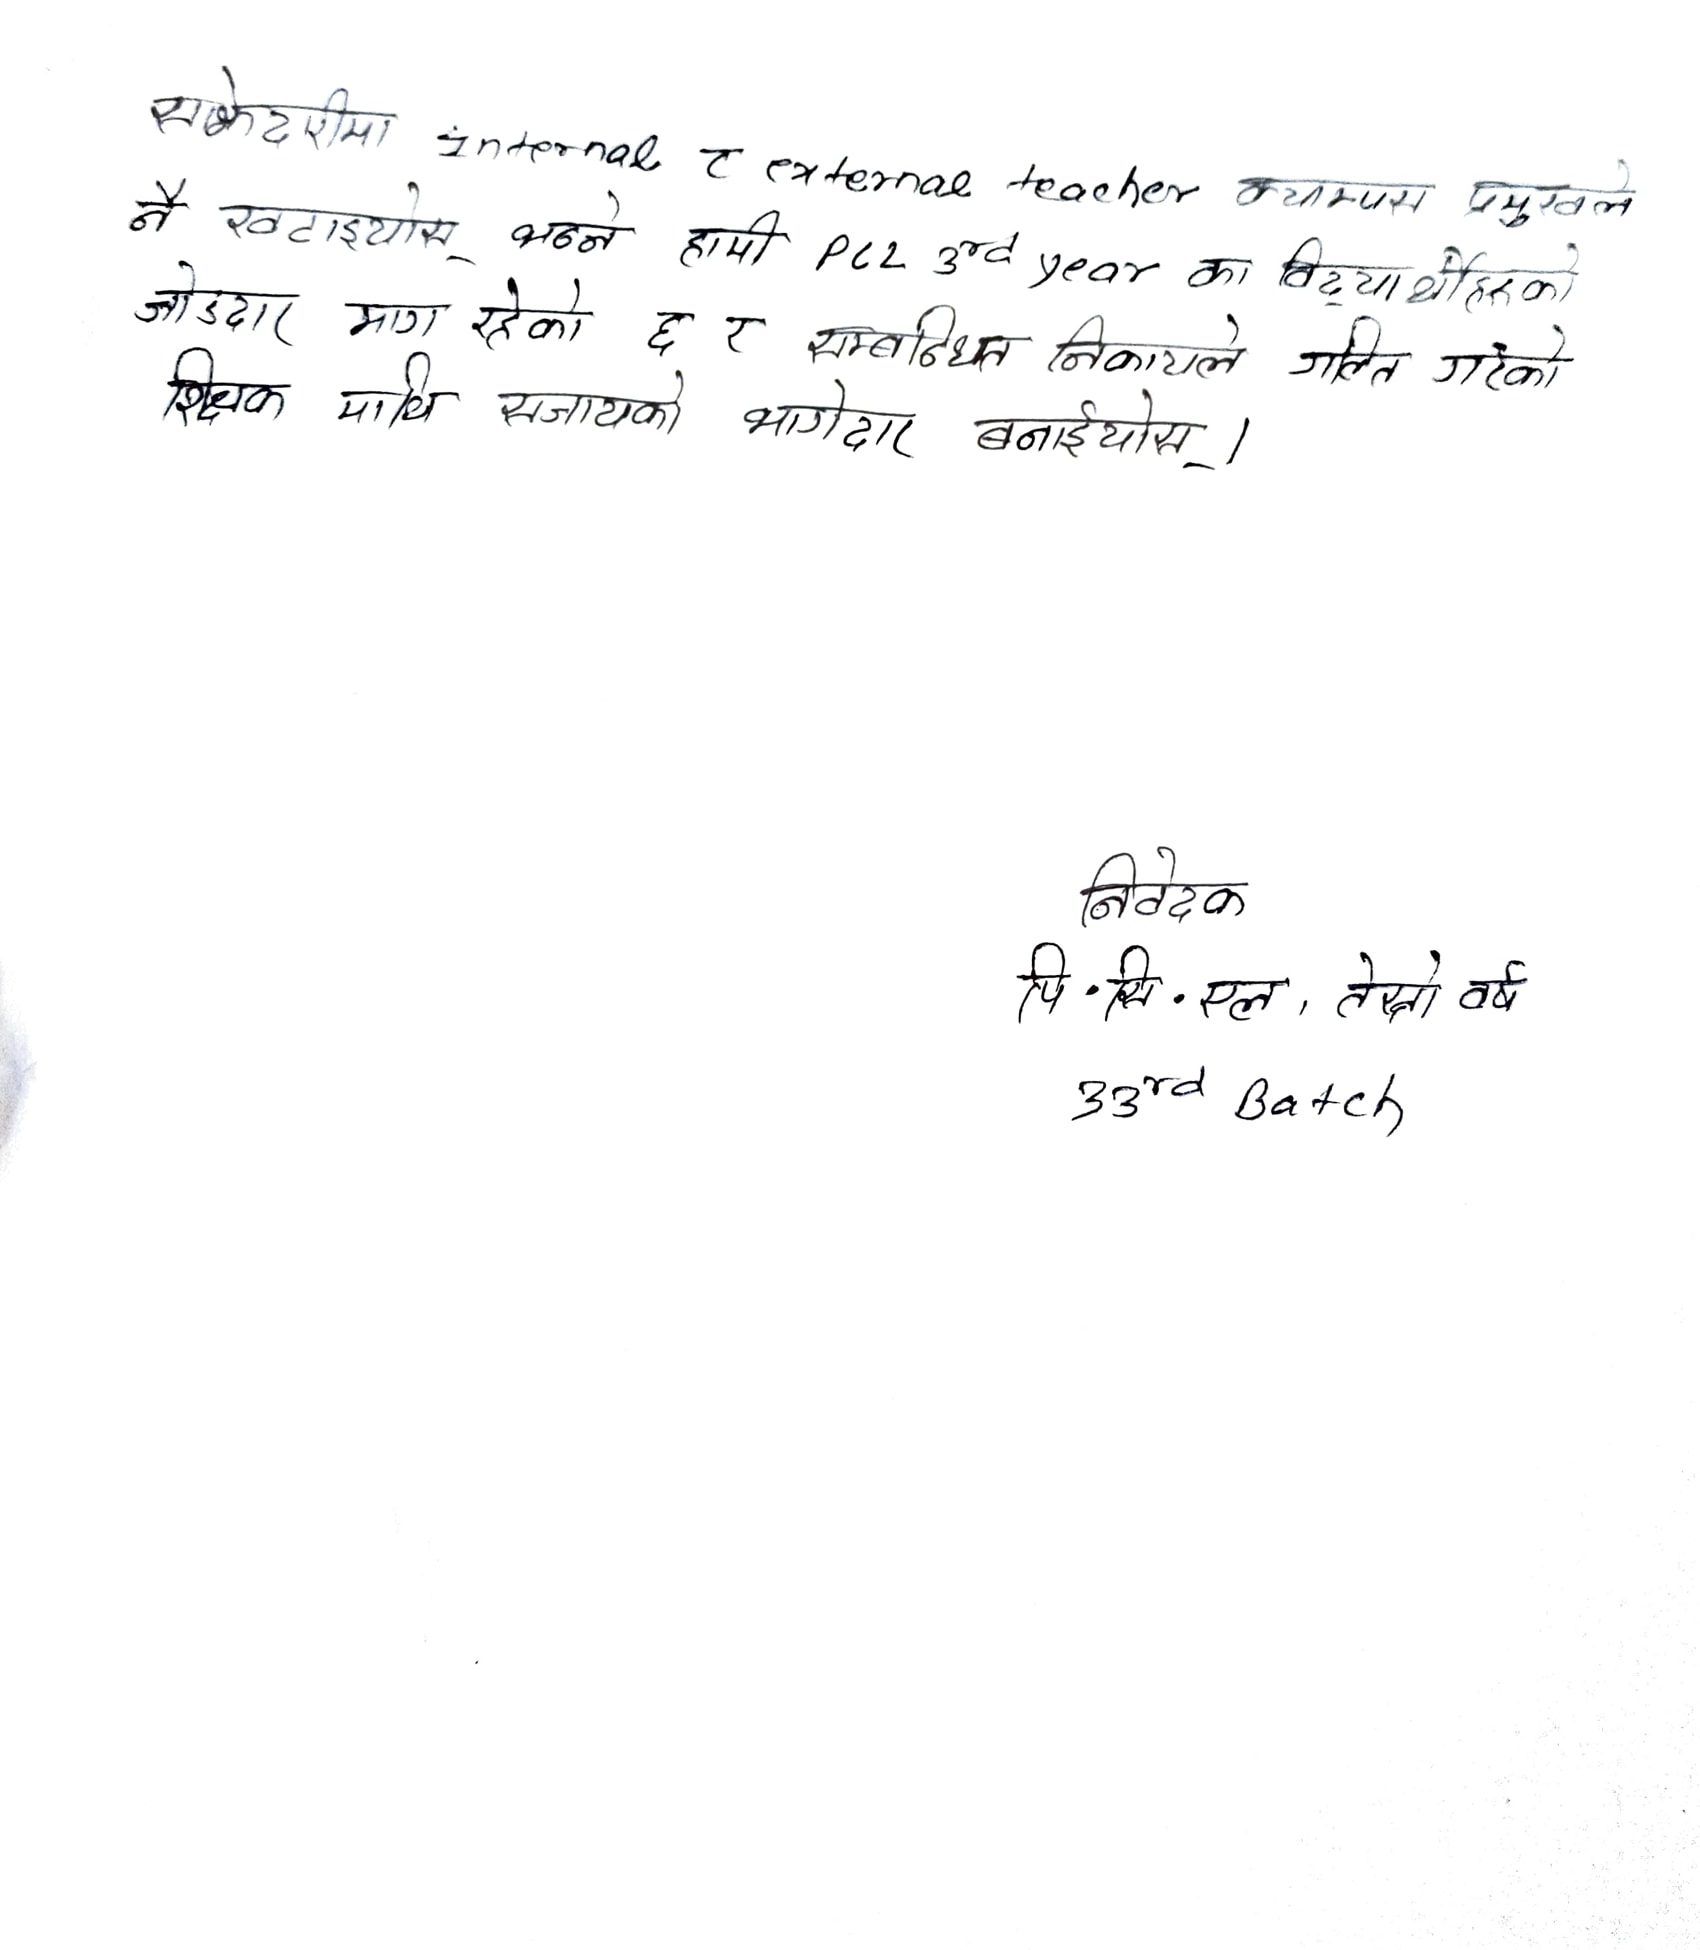 सक्रेटरीमा internal र external teacher क्याम्पस प्रमुखले
नै खटाइयोस् भन्ने हामी PCL 3rd year का विद्यार्थीहरुको
जोडदार माग रहेको छ र सम्बन्धित निकायले गल्ति गरेको
शिक्षक माथि सजायको भागेदार बनाईयोस् ।
निवेदक
पि. सि. एल, तेस्रो वर्ष
33rd Batch